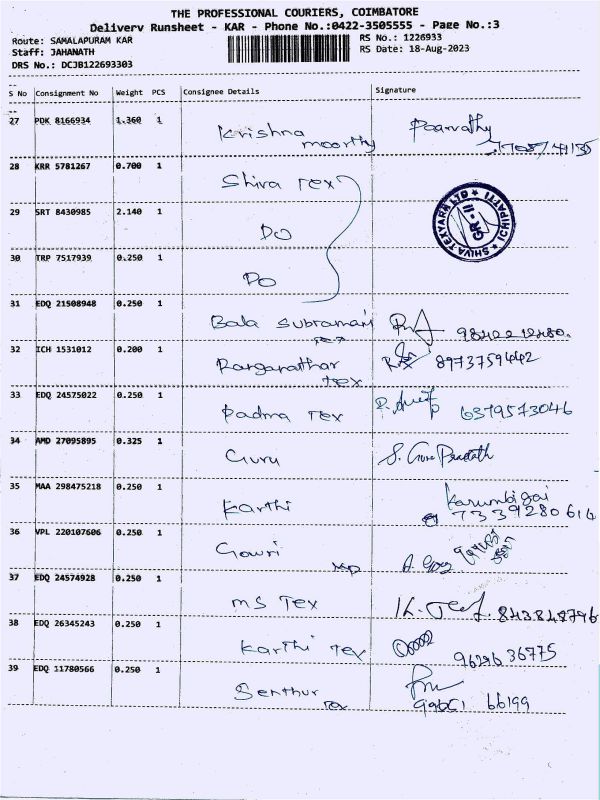 THE PROFESSIONAL COURIERS, COIMBATORE
Delivery Runsheet - KAR - Phone No.:0422-3505555 - Page No.:3
Route: SAMALAPURAM KAR
RS No.: 1226933
Staff: JAHANATH
RS Date: 18-Aug-2023
DRS No.: DCJB122693303
S No Consignment No Weight PCS Consignee Details Signature
27 PDK 8166934 1.360 1 Krishna moorthy Paarvathy
28 KRR 5781267 0.700 1 Shiva Tex
29 SRT 8430985 2.140 1 DO
SHIVA TEXYARN LTD ★ ICHIPATTI ★ GR-II
30 TRP 7517939 0.250 1 DO
31 EDQ 21508948 0.250 1 Bala Subramani Tex
32 ICH 1531012 0.200 1 Ranganathar Tex 8973759442
33 EDQ 24575022 0.250 1 Padma Tex 6379573046
34 AMD 27095895 0.325 1 Guru S. Guru
35 MAA 298475218 0.250 1 Karthi Karumbigai
7339280614
36 VPL 220107606 0.250 1 Gowri
37 EDQ 24574928 0.250 1 MS Tex
38 EDQ 26345243 0.250 1 Karthi Tex 9626 36775
39 EDQ 11780566 0.250 1 Senthur Tex 66199